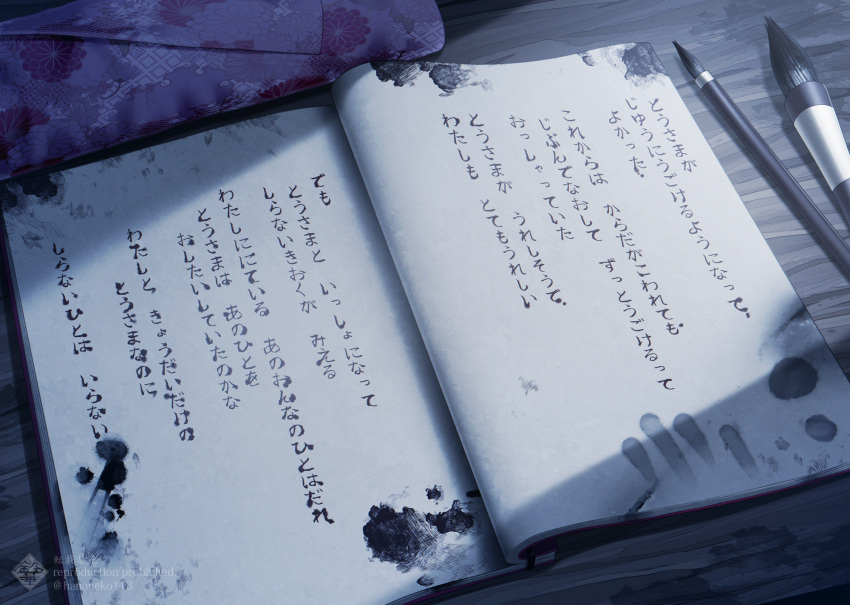 とうさまが
じゆうにうごけるようになって、
よかった。
これからは からだがこわれても
じぶんでなおして ずっとうごけるって
おっしゃっていた
とうさまが うれしそうで、
わたしも とてもうれしい
でも
とうさまと いっしょになって
しらないきおくが みえる
わたしににている あのおんなのひとはだれ
とうさまは あのひとを
おしたいしていたのかな
わたしと、きょうだいだけの
とうさまなのに
しらないひとは いらない
reproduction prohibited